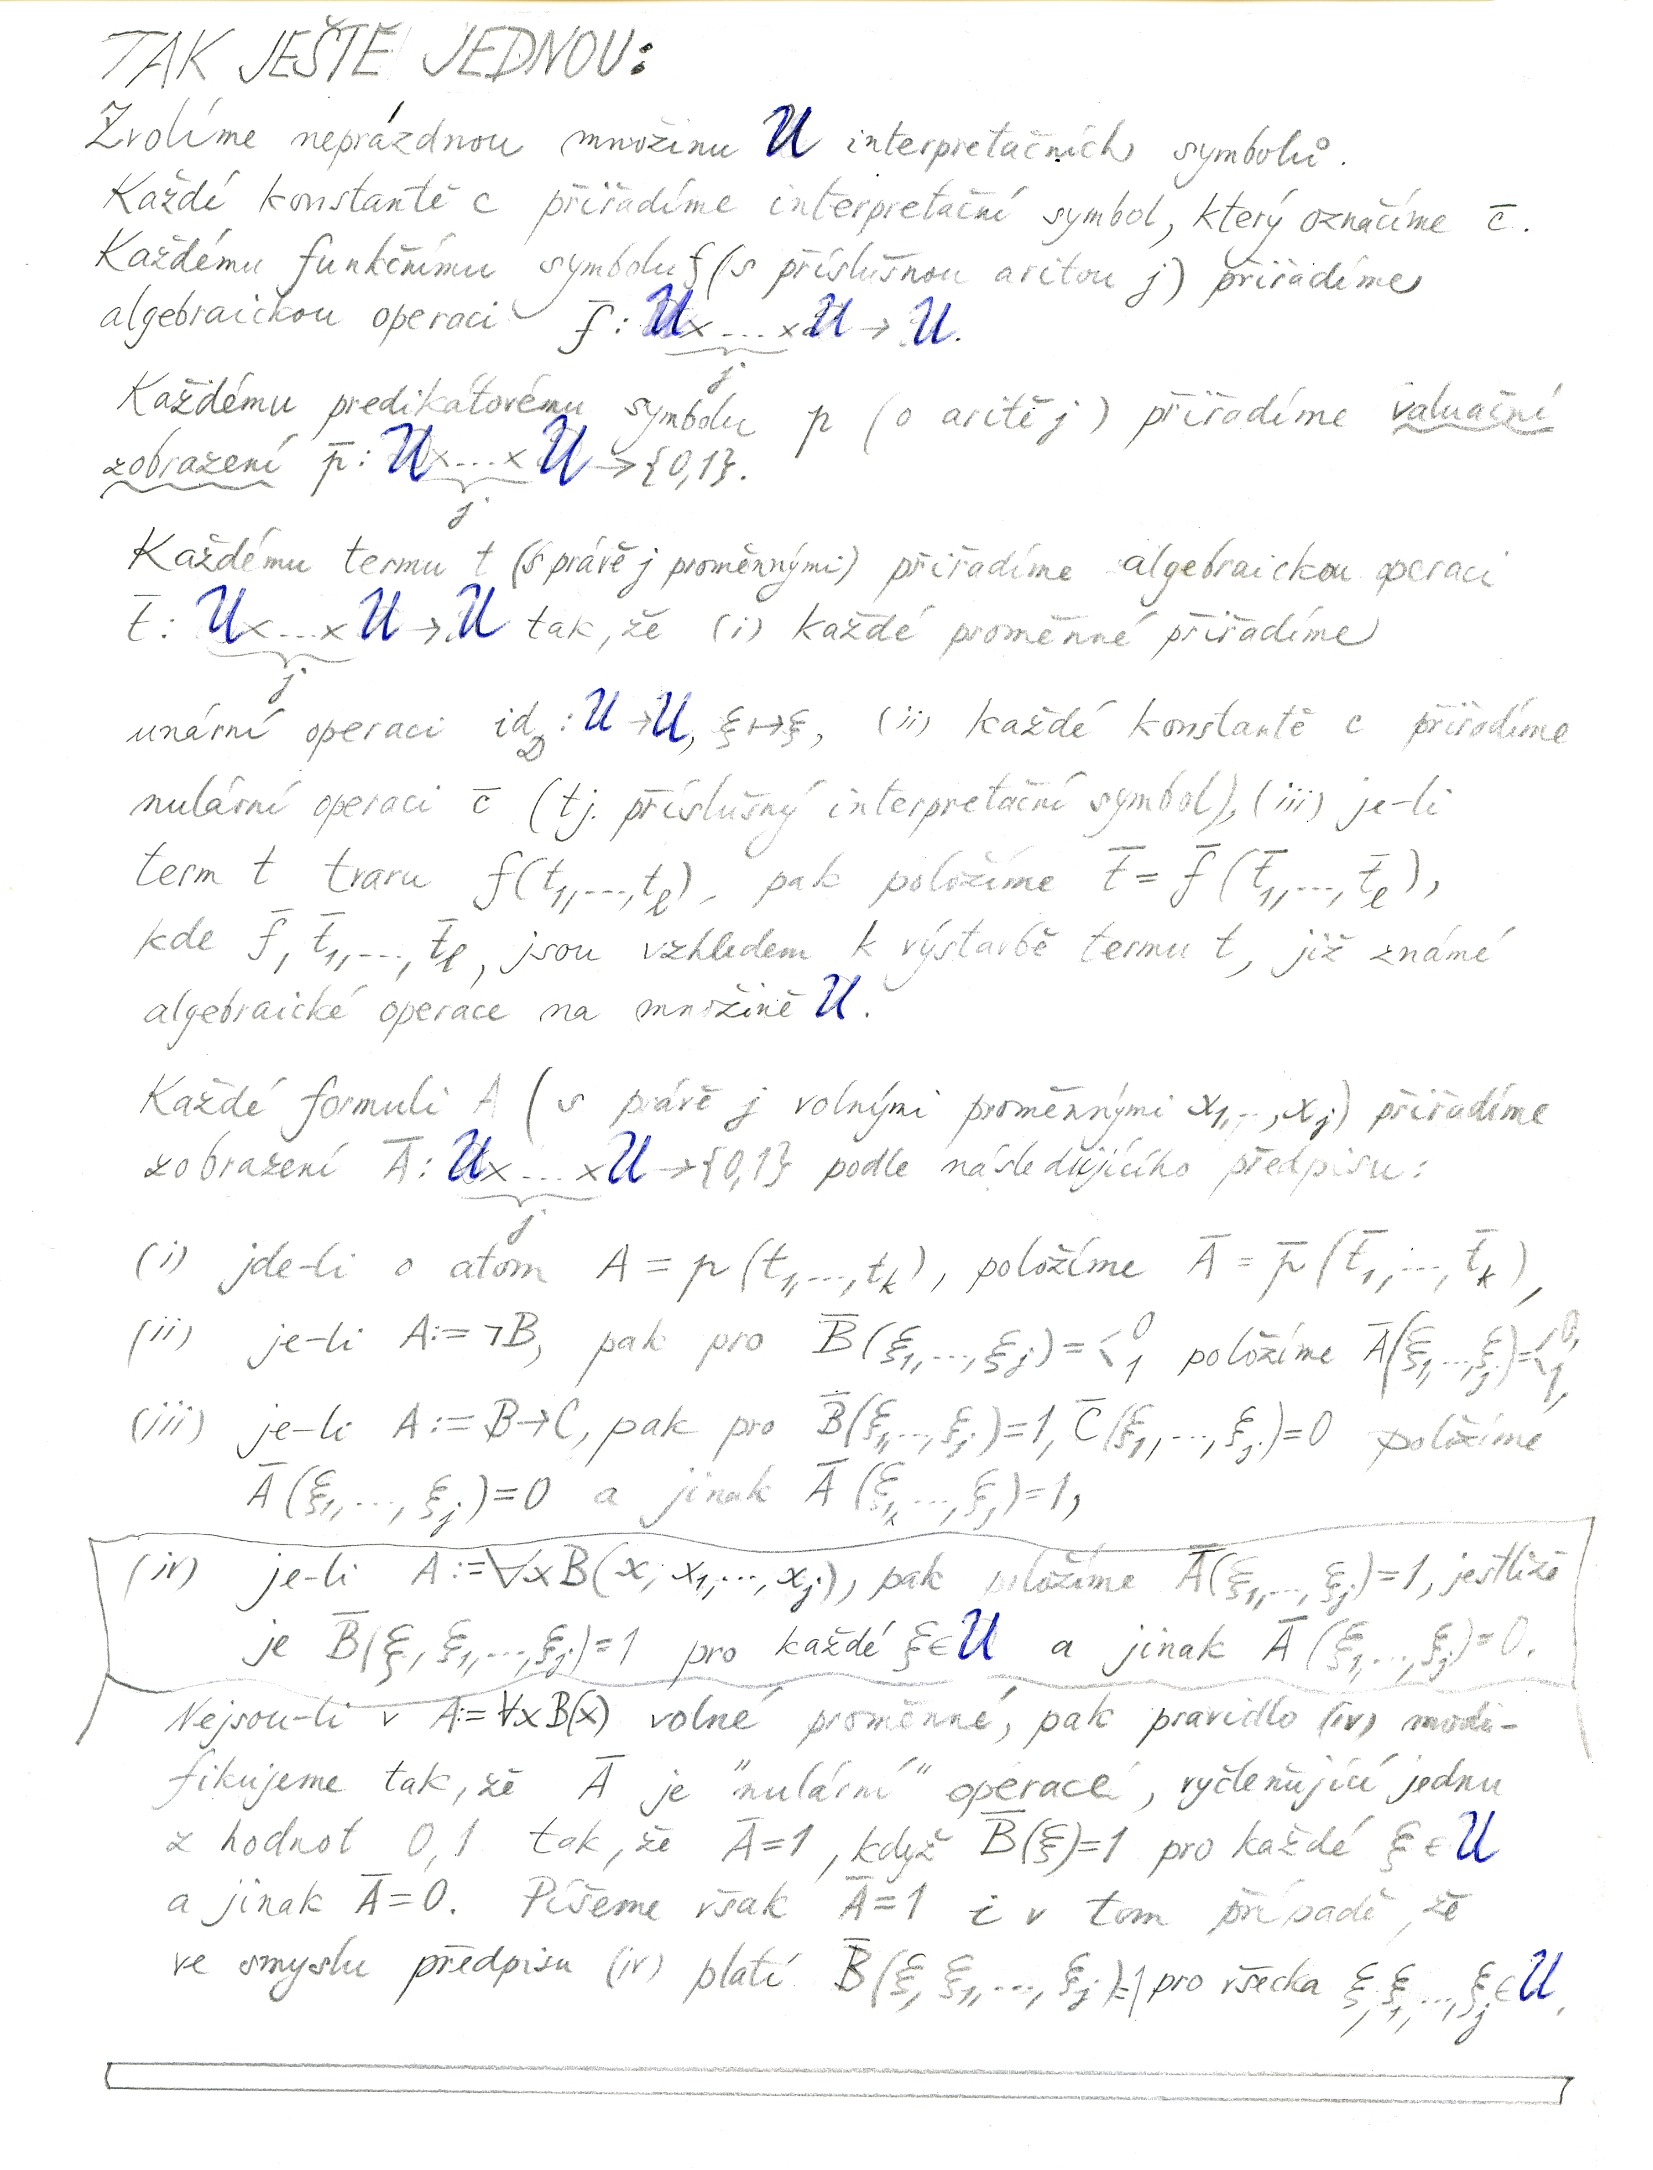 TAK JEŠTĚ JEDNOU:
Zvolíme neprázdnou množinu U interpretačních symbolů.
Každé konstantě c přiřadíme interpretační symbol, který označíme c̄.
Každému funkčnímu symbolu f (s příslušnou aritou j) přiřadíme
algebraickou operaci f̄: U×...×U → U.
j
Každému predikátovému symbolu p (o aritě j) přiřadíme valuační
zobrazení p̄: U×...×U → {0,1}.
j
Každému termu t (s právě j proměnnými) přiřadíme algebraickou operaci
t̄: U×...×U → U tak, že (i) každé proměnné přiřadíme
j
unární operaci id_D: U → U, ξ ↦ ξ, (ii) každé konstantě c přiřadíme
nulární operaci c̄ (tj. příslušný interpretační symbol), (iii) je-li
term t tvaru f(t₁,...,t_ℓ), pak položíme t̄ = f̄(t̄₁,...,t̄_ℓ),
kde f̄, t̄₁,...,t̄_ℓ, jsou vzhledem k výstavbě termu t, již známé
algebraické operace na množině U.
Každé formuli A (s právě j volnými proměnnými x₁,...,x_j) přiřadíme
zobrazení Ā: U×...×U → {0,1} podle následujícího předpisu:
j
(i) jde-li o atom A = p(t₁,...,t_k), položíme Ā = p̄(t̄₁,...,t̄_k),
(ii) je-li A:= ¬B, pak pro B̄(ξ₁,...,ξ_j) = < 0 1 položíme Ā(ξ₁,...,ξ_j) = < 0, 1,
(iii) je-li A:= B→C, pak pro B̄(ξ₁,...,ξ_j)=1, C̄(ξ₁,...,ξ_j)=0 položíme
Ā(ξ₁,...,ξ_j)=0 a jinak Ā(ξ₁,...,ξ_j)=1,
(iv) je-li A:= ∀xB(x, x₁,...,x_j), pak položíme Ā(ξ₁,...,ξ_j)=1, jestliže
je B̄(ξ, ξ₁,...,ξ_j)=1 pro každé ξ∈U a jinak Ā(ξ₁,...,ξ_j)=0.
Nejsou-li v A:= ∀xB(x) volné proměnné, pak pravidlo (iv) modi-
fikujeme tak, že Ā je "nulární" operací, vyčleňující jednu
z hodnot 0,1 tak, že Ā=1, když B̄(ξ)=1 pro každé ξ∈U
a jinak Ā=0. Píšeme však Ā=1 i v tom případě, že
ve smyslu předpisu (iv) platí B̄(ξ, ξ₁,...,ξ_j)=1 pro všecka ξ, ξ₁,...,ξ_j∈U.